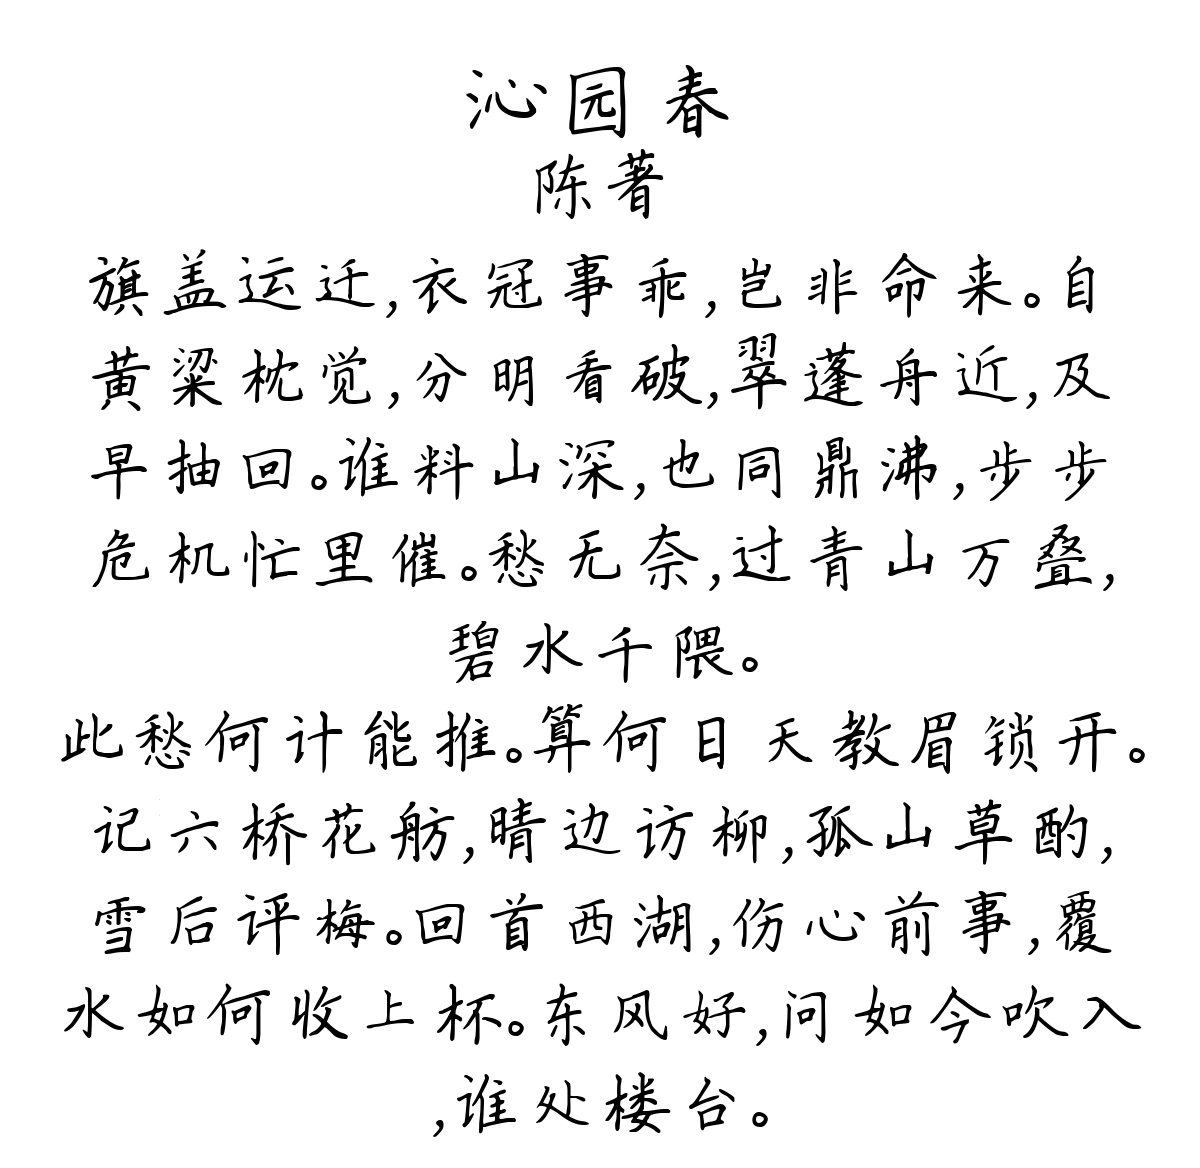 沁园春
陈著
旗盖运迁,衣冠事乖,岂非命来。自
黄粱枕觉,分明看破,翠蓬舟近,及
早抽回。谁料山深,也同鼎沸,步步
危机忙里催。愁无奈,过青山万叠,
碧水千隈。
此愁何计能推。算何日天教眉锁开。
记六桥花舫,晴边访柳,孤山草酌,
雪后评梅。回首西湖,伤心前事,覆
水如何收上杯。东风好,问如今吹入
,谁处楼台。